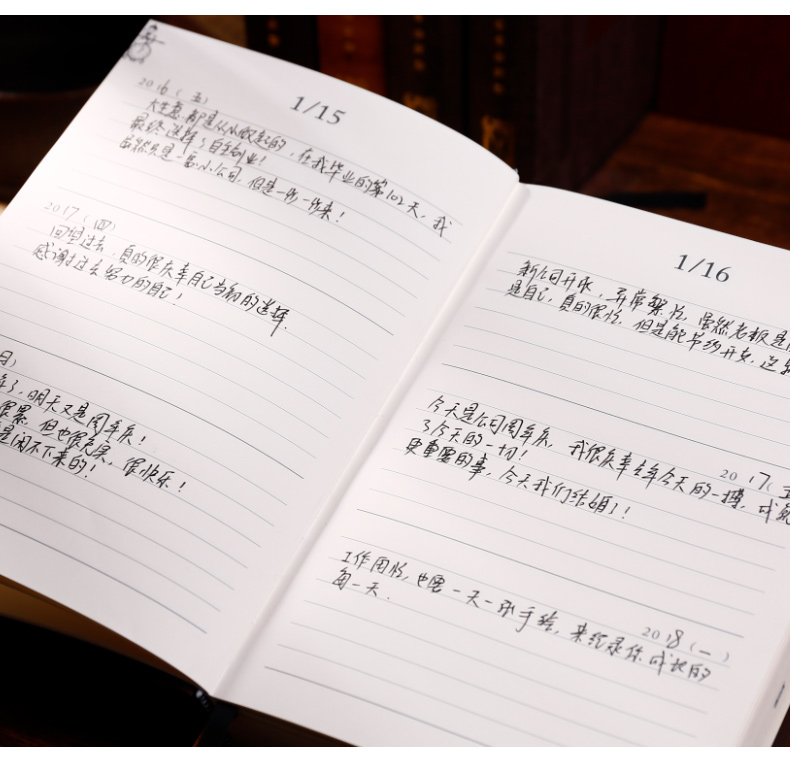 1/15
2016（五）
大生意都是从小做起的，在我毕业的第102天，我
最终选择了自主创业！
虽然只是一家小公司，但是一步一步来！
2017（四）
回望过去，真的很庆幸自己当初的选择.
感谢过去努力的自己！
日）
，明天又是周年庆！
很累，但也很充实，很快乐！
是闲不下来的！
1/16
新公司开张，异常繁忙，虽然老板是
是自己，真的很忙，但是能节约开支，
2017（五
今天是公司周年庆，我很庆幸去年今天的一搏，成就
了今天的一切！
更重要的事，今天我们结婚！！
2018（一）
工作再忙，也要一天一张手绘，来纪录你成长的
每一天.